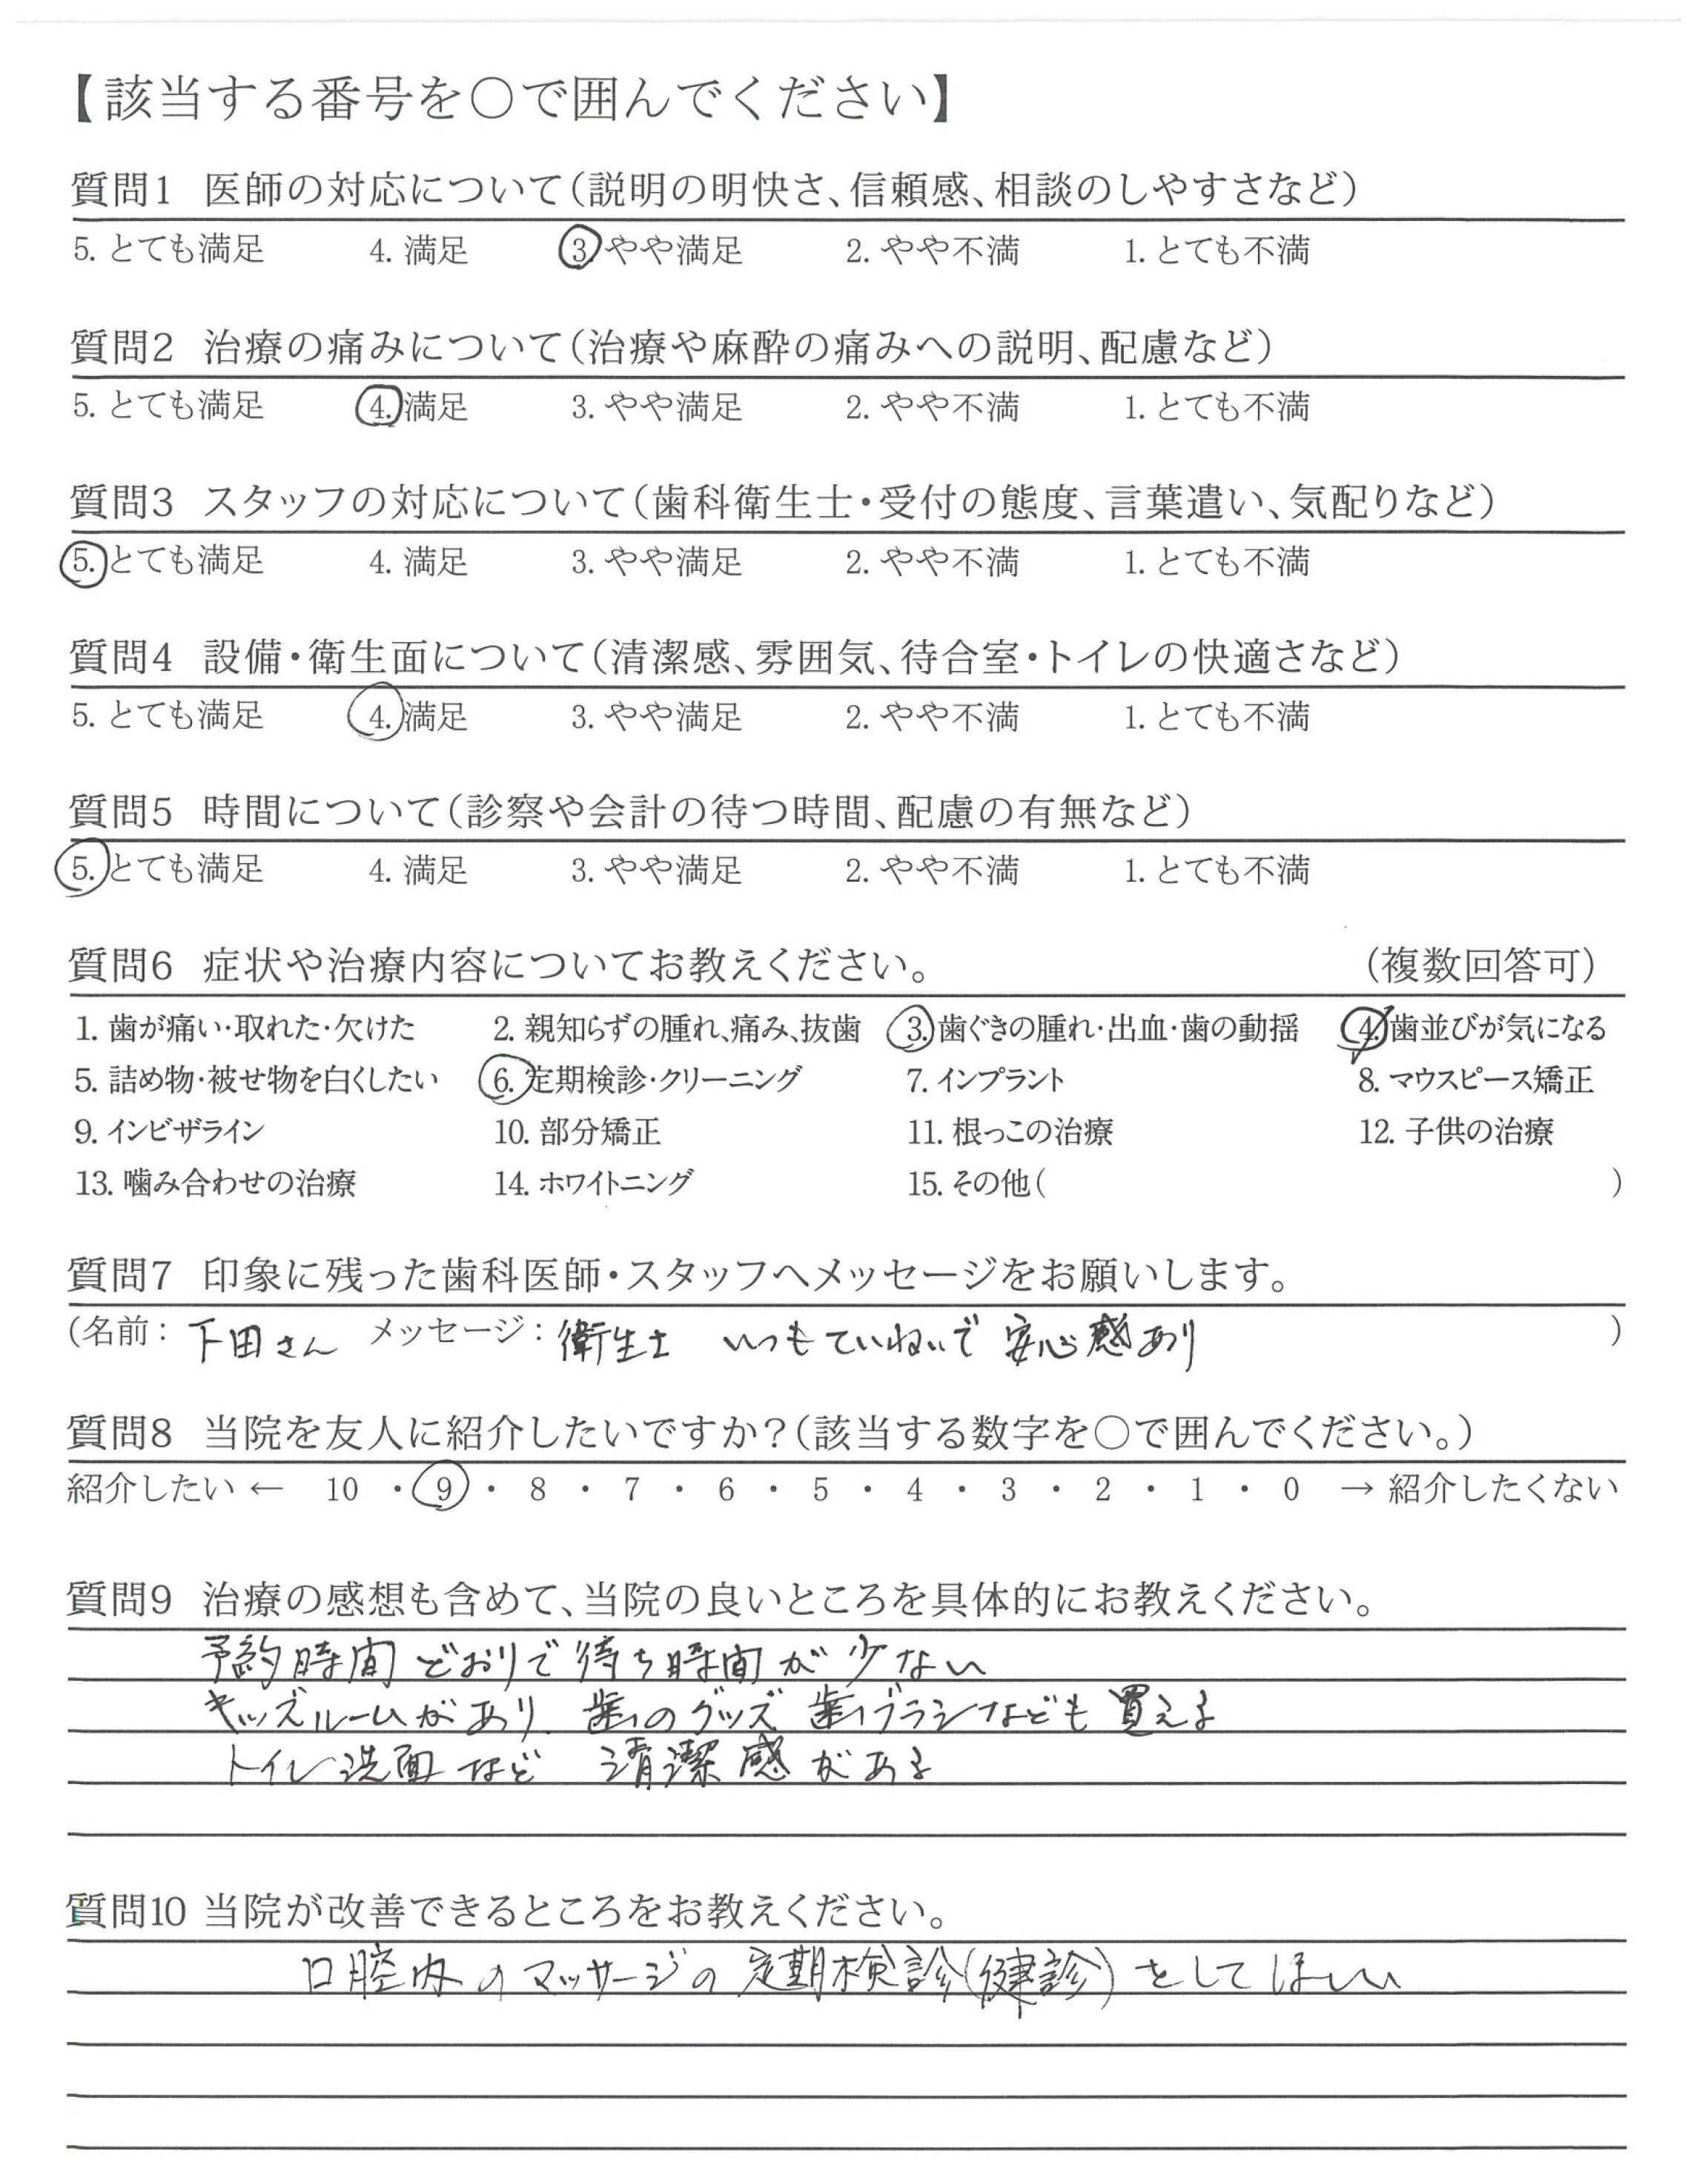 【該当する番号を○で囲んでください】
質問1 医師の対応について(説明の明快さ、信頼感、相談のしやすさなど)
5. とても満足 4. 満足 3. やや満足 2. やや不満 1. とても不満
質問2 治療の痛みについて(治療や麻酔の痛みへの説明、配慮など)
5. とても満足 4. 満足 3. やや満足 2. やや不満 1. とても不満
質問3 スタッフの対応について(歯科衛生士・受付の態度、言葉遣い、気配りなど)
5. とても満足 4. 満足 3. やや満足 2. やや不満 1. とても不満
質問4 設備・衛生面について(清潔感、雰囲気、待合室・トイレの快適さなど)
5. とても満足 4. 満足 3. やや満足 2. やや不満 1. とても不満
質問5 時間について(診察や会計の待つ時間、配慮の有無など)
5. とても満足 4. 満足 3. やや満足 2. やや不満 1. とても不満
質問6 症状や治療内容についてお教えください。 (複数回答可)
1. 歯が痛い・取れた・欠けた 2. 親知らずの腫れ、痛み、抜歯 3. 歯ぐきの腫れ・出血・歯の動揺 4. 歯並びが気になる
5. 詰め物・被せ物を白くしたい 6. 定期検診・クリーニング 7. インプラント 8. マウスピース矯正
9. インビザライン 10. 部分矯正 11. 根っこの治療 12. 子供の治療
13. 噛み合わせの治療 14. ホワイトニング 15. その他( )
質問7 印象に残った歯科医師・スタッフへメッセージをお願いします。
(名前: 下田さん メッセージ: 衛生士 いつもていねいで 安心感あり )
質問8 当院を友人に紹介したいですか?(該当する数字を○で囲んでください。)
紹介したい ← 10 ・ 9 ・ 8 ・ 7 ・ 6 ・ 5 ・ 4 ・ 3 ・ 2 ・ 1 ・ 0 → 紹介したくない
質問9 治療の感想も含めて、当院の良いところを具体的にお教えください。
予約時間どおりで待ち時間が少ない
キッズルームがあり、歯のグッズ 歯ブラシなども買える
トイレ洗面など 清潔感がある
質問10 当院が改善できるところをお教えください。
口腔内のマッサージの定期検診(健診)をしてほしい